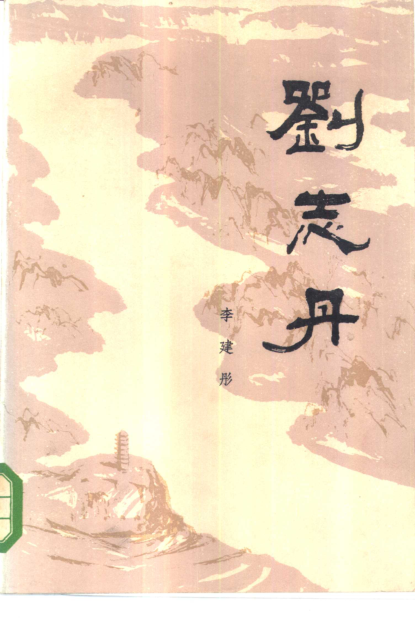 劉志丹
李建彤